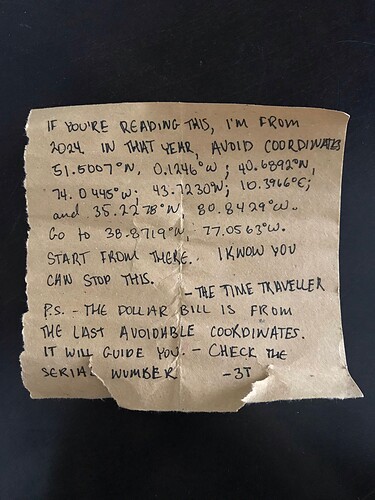 IF YOU'RE READING THIS, I'M FROM
2024. IN THAT YEAR, AVOID COORDINATES
51.5007°N, 0.1246°W; 40.6892°N,
74.0445°W; 43.7230°N; 10.3966°E;
and 35.2278°N 80.8429°W..
GO to 38.8719°N; 77.0563°W.
START FROM THERE.. I KNOW YOU
CAN STOP THIS.
-THE TIME TRAVELLER
P.S. - THE DOLLAR BILL IS FROM
THE LAST AVOIDABLE COORDINATES.
IT WILL GUIDE YOU. - CHECK THE
SERIAL NUMBER -3T